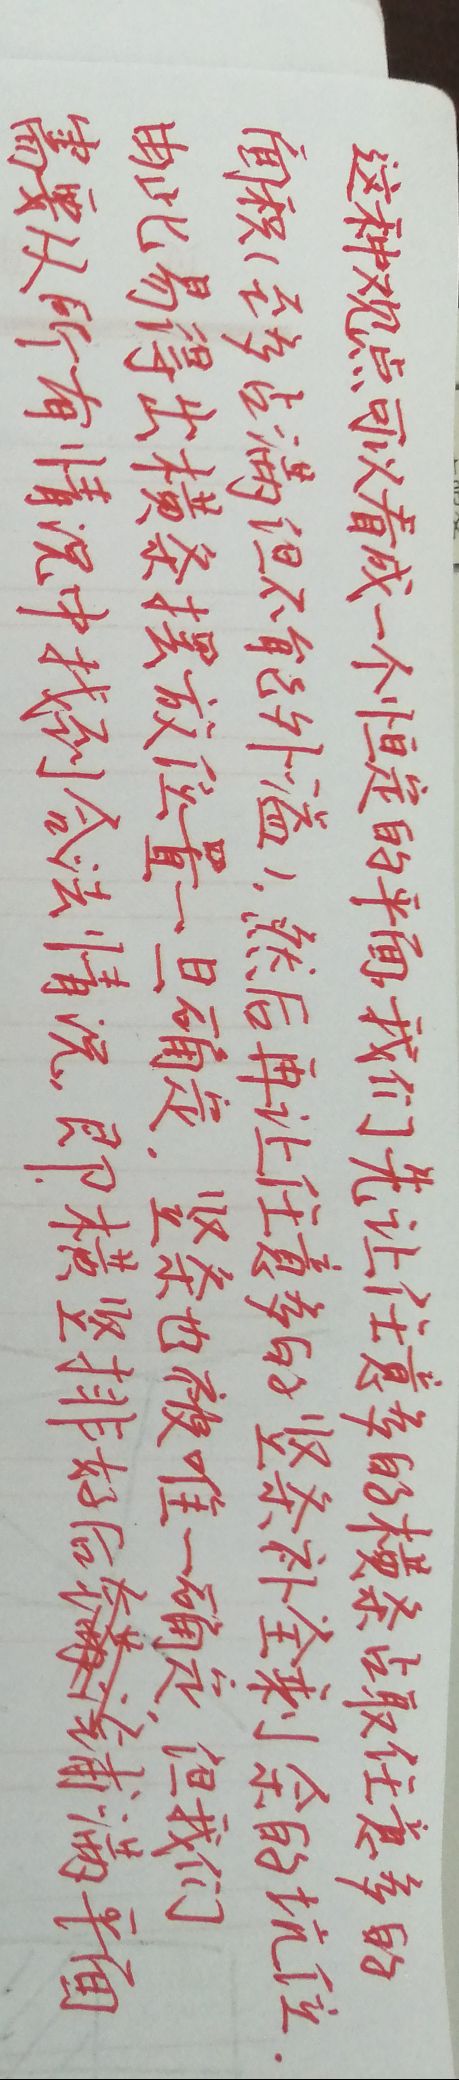 这种观点可以看成一个恒定的平面,我们先让任意多的横条占取任意多的
面积(至多占满但不能外溢),然后再让任意多的竖条补全剩余的坑位.
由此易得出横条摆放位置一旦确定,竖条也被唯一确定,但我们
需要从所有情况中找到合法情况,即横竖排好后铺满平面